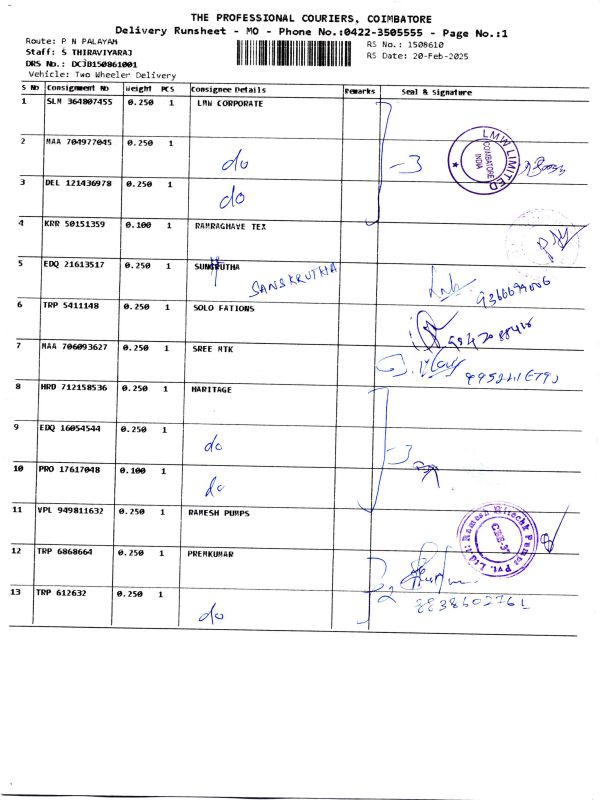 THE PROFESSIONAL COURIERS, COIMBATORE
Delivery Runsheet - MO - Phone No.:0422-3505555 - Page No.:1
Route: P N PALAYAM
RS No.: 1508610
Staff: S THIRAVIYARAJ
RS Date: 20-Feb-2025
DRS No.: DCJB150861001
Vehicle: Two Wheeler Delivery
S No Consignment No Weight PCS Consignee Details Remarks Seal & Signature
1 SLM 364807455 0.250 1 LMW CORPORATE
2 MAA 704977045 0.250 1 do -3
LMW LIMITED COIMBATORE INDIA
3 DEL 121436978 0.250 1 do
4 KRR 50151359 0.100 1 RAMRAGHAVE TEX
5 EDQ 21613517 0.250 1 SUNSKRUTHA SANSKRUTHA
6 TRP 5411148 0.250 1 SOLO FATIONS
7 MAA 706093627 0.250 1 SREE MTK
8 HRD 712158536 0.250 1 HARITAGE
9 EDQ 16054544 0.250 1 do -3
10 PRO 17617048 0.100 1 do
11 VPL 949811632 0.250 1 RAMESH PUMPS
CBE-37
12 TRP 6868664 0.250 1 PREMKUMAR
2
13 TRP 612632 0.250 1 do